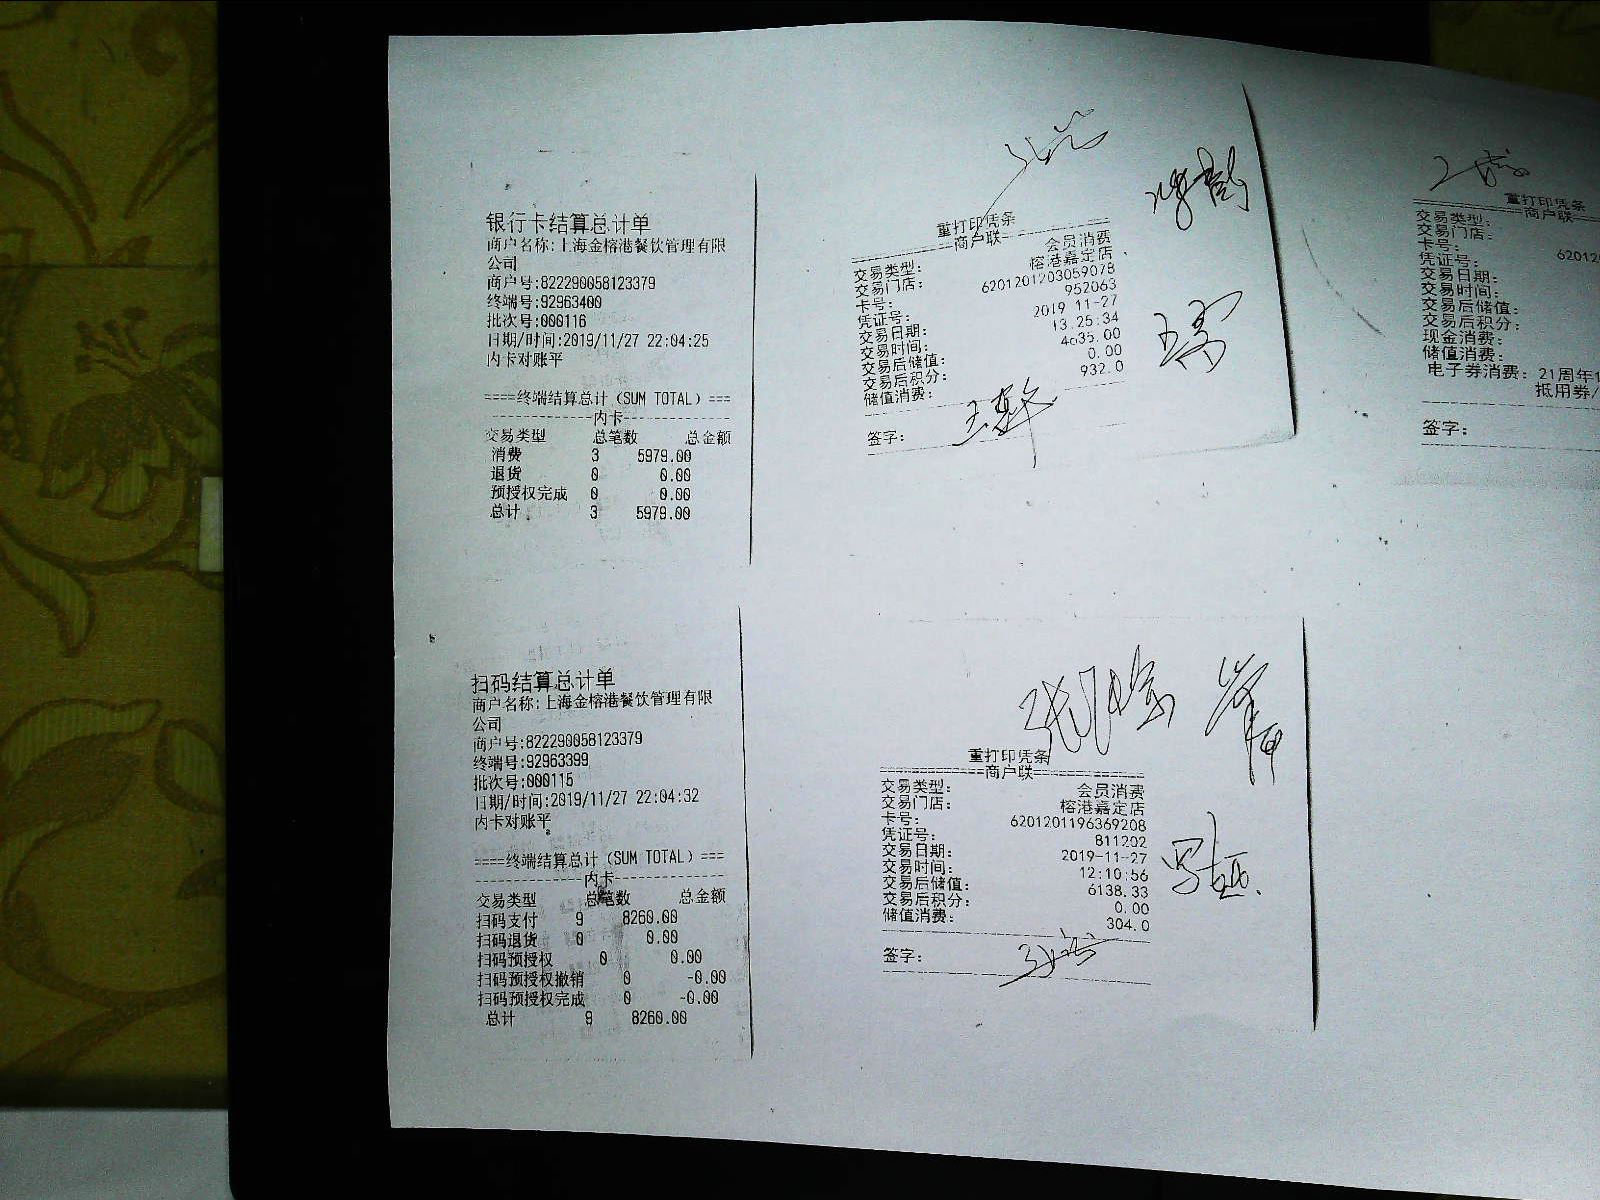 银行卡结算总计单
商户名称:上海金榕港餐饮管理有限
公司
商户号:822290058123379
终端号:92963400
批次号:000116
日期/时间:2019/11/27 22:04:25
内卡对账平
====终端结算总计(SUM TOTAL)===
--------------内卡--------------
交易类型 总笔数 总金额
消费 3 5979.00
退货 0 0.00
预授权完成 0 0.00
总计 3 5979.00
扫码结算总计单
商户名称:上海金榕港餐饮管理有限
公司
商户号:822290058123379
终端号:92963399
批次号:000115
日期/时间:2019/11/27 22:04:32
内卡对账平
====终端结算总计(SUM TOTAL)===
--------------内卡--------------
交易类型 总笔数 总金额
扫码支付 9 8260.00
扫码退货 0 0.00
扫码预授权 0 0.00
扫码预授权撤销 0 -0.00
扫码预授权完成 0 -0.00
总计 9 8260.00
重打印凭条
商户联
交易类型: 会员消费
交易门店: 榕港嘉定店
卡号: 6201201203059078
凭证号: 952063
交易日期: 2019-11-27
交易时间: 13:25:34
交易后储值: 4635.00
交易后积分: 0.00
储值消费: 932.0
签字:
重打印凭条
商户联
交易类型: 会员消费
交易门店: 榕港嘉定店
卡号: 6201201196369208
凭证号: 811202
交易日期: 2019-11-27
交易时间: 12:10:56
交易后储值: 6138.33
交易后积分: 0.00
储值消费: 304.0
签字:
重打印凭条
商户联
交易类型:
交易门店:
卡号: 62012
凭证号:
交易日期:
交易时间:
交易后储值:
交易后积分:
现金消费:
储值消费:
电子券消费: 21周年1
抵用券/
签字: